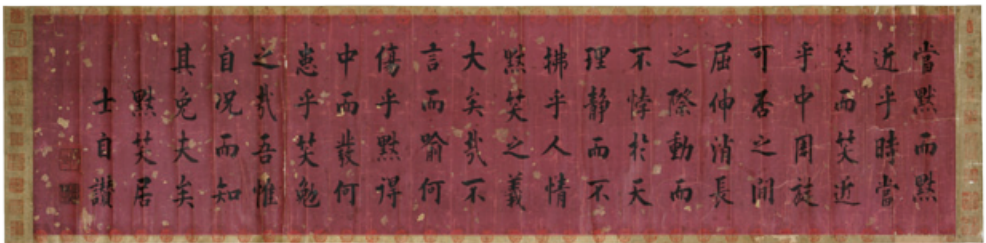 當黙而黙
近乎時當
笑而笑近
乎中周旋
可否之間
屈伸消長
之際動而
不悖於天
理靜而不
拂乎人情
黙笑之義
大矣哉不
言而喻何
傷乎黙得
中而發何
患乎笑勉
之哉吾惟
自况而知
其免夫矣
黙笑居
士自讃